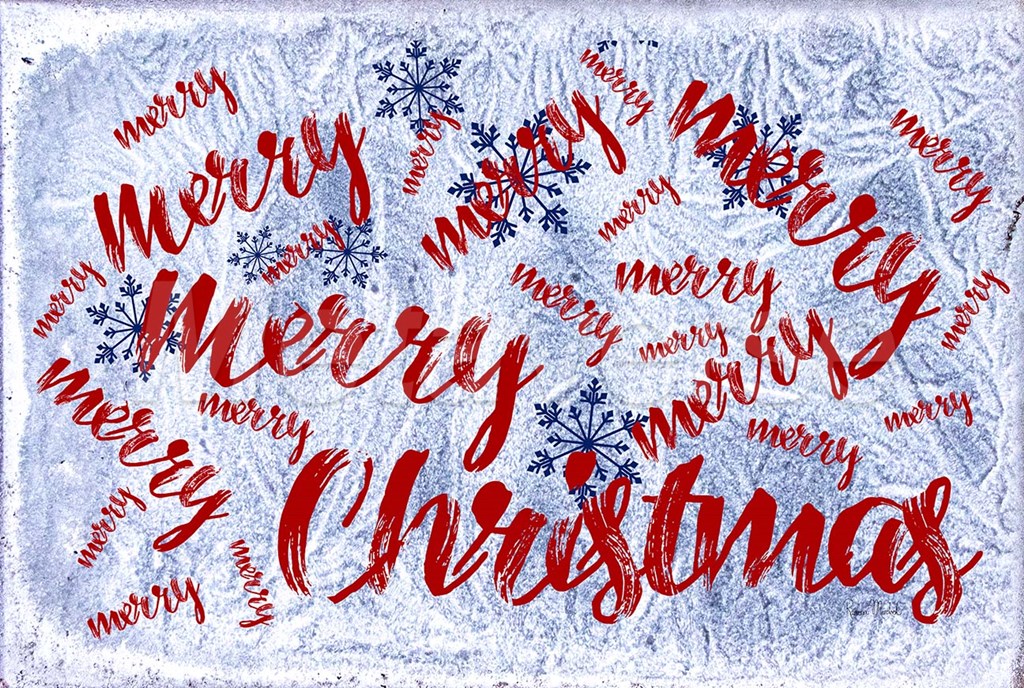 merry
merry
merry
Merry
merry
merry
Merry
merry
merry
merry
merry
merry
merry
merry
merry
Merry
merry
merry
merry
merry
merry
merry
merry
merry
merry
Christmas